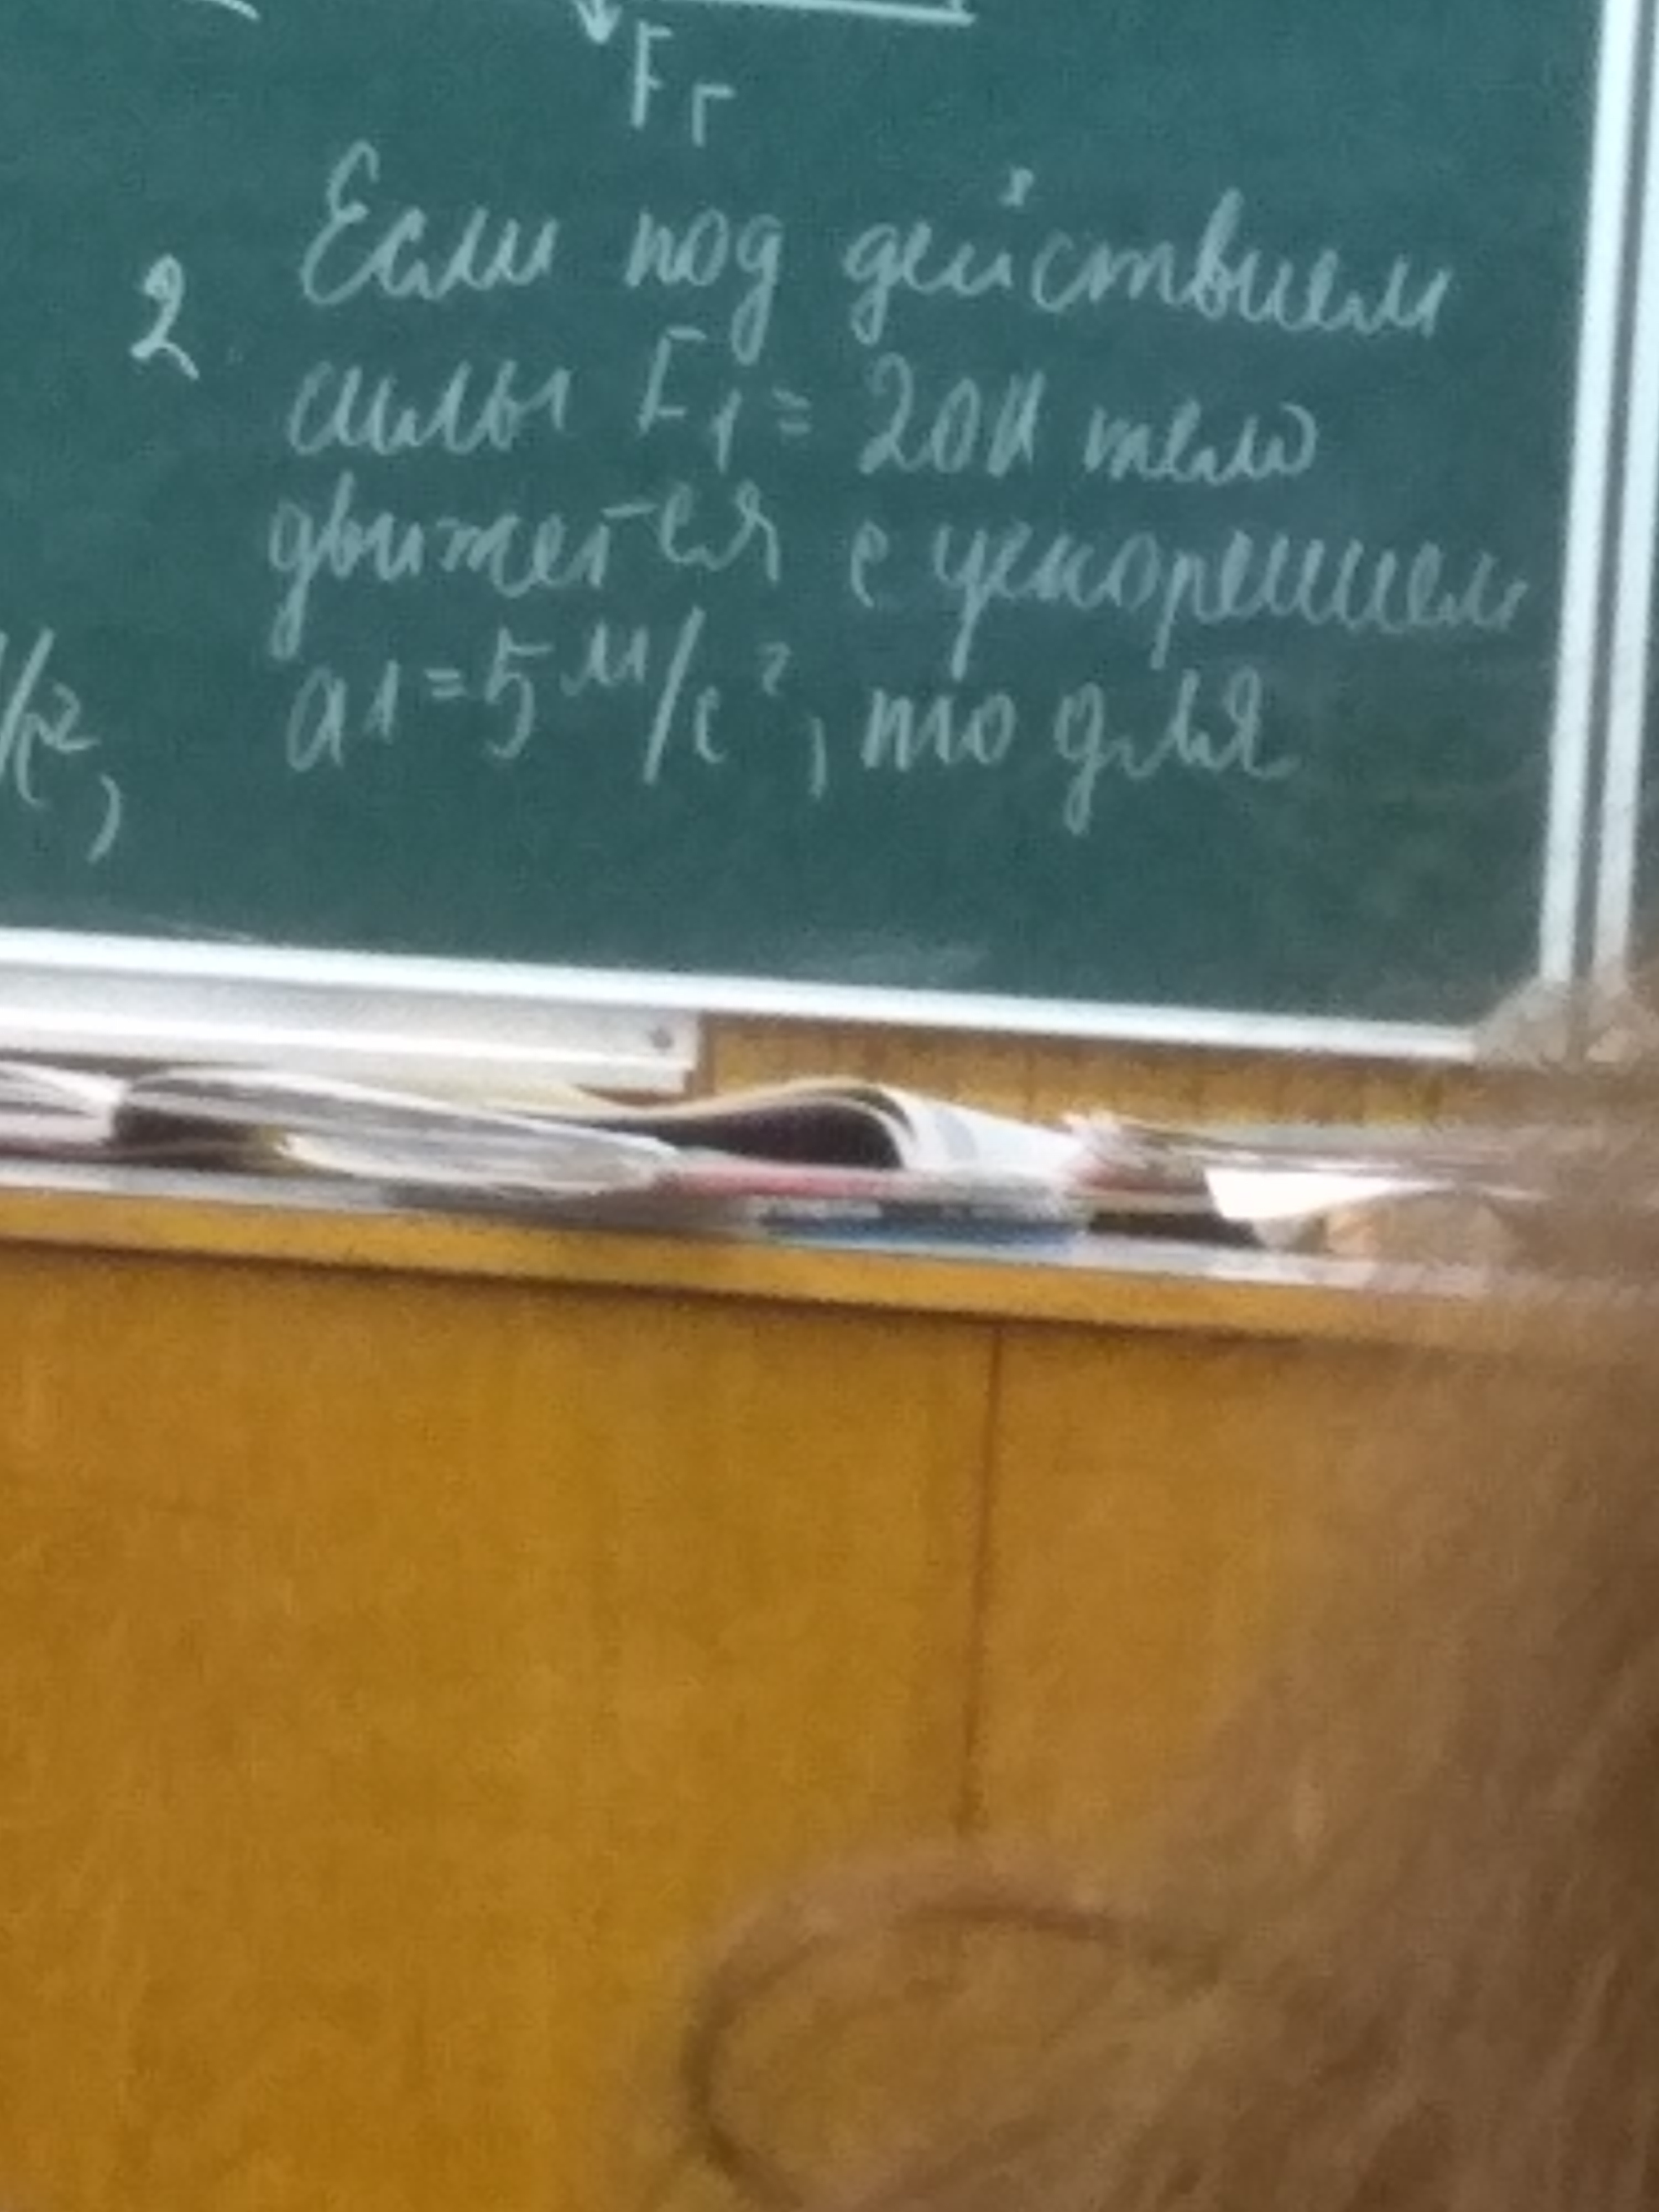 Fг
2. Если под действием
силы F1 = 20Н тело
движется с ускорением
a1=5 м/с², то для
/с²,